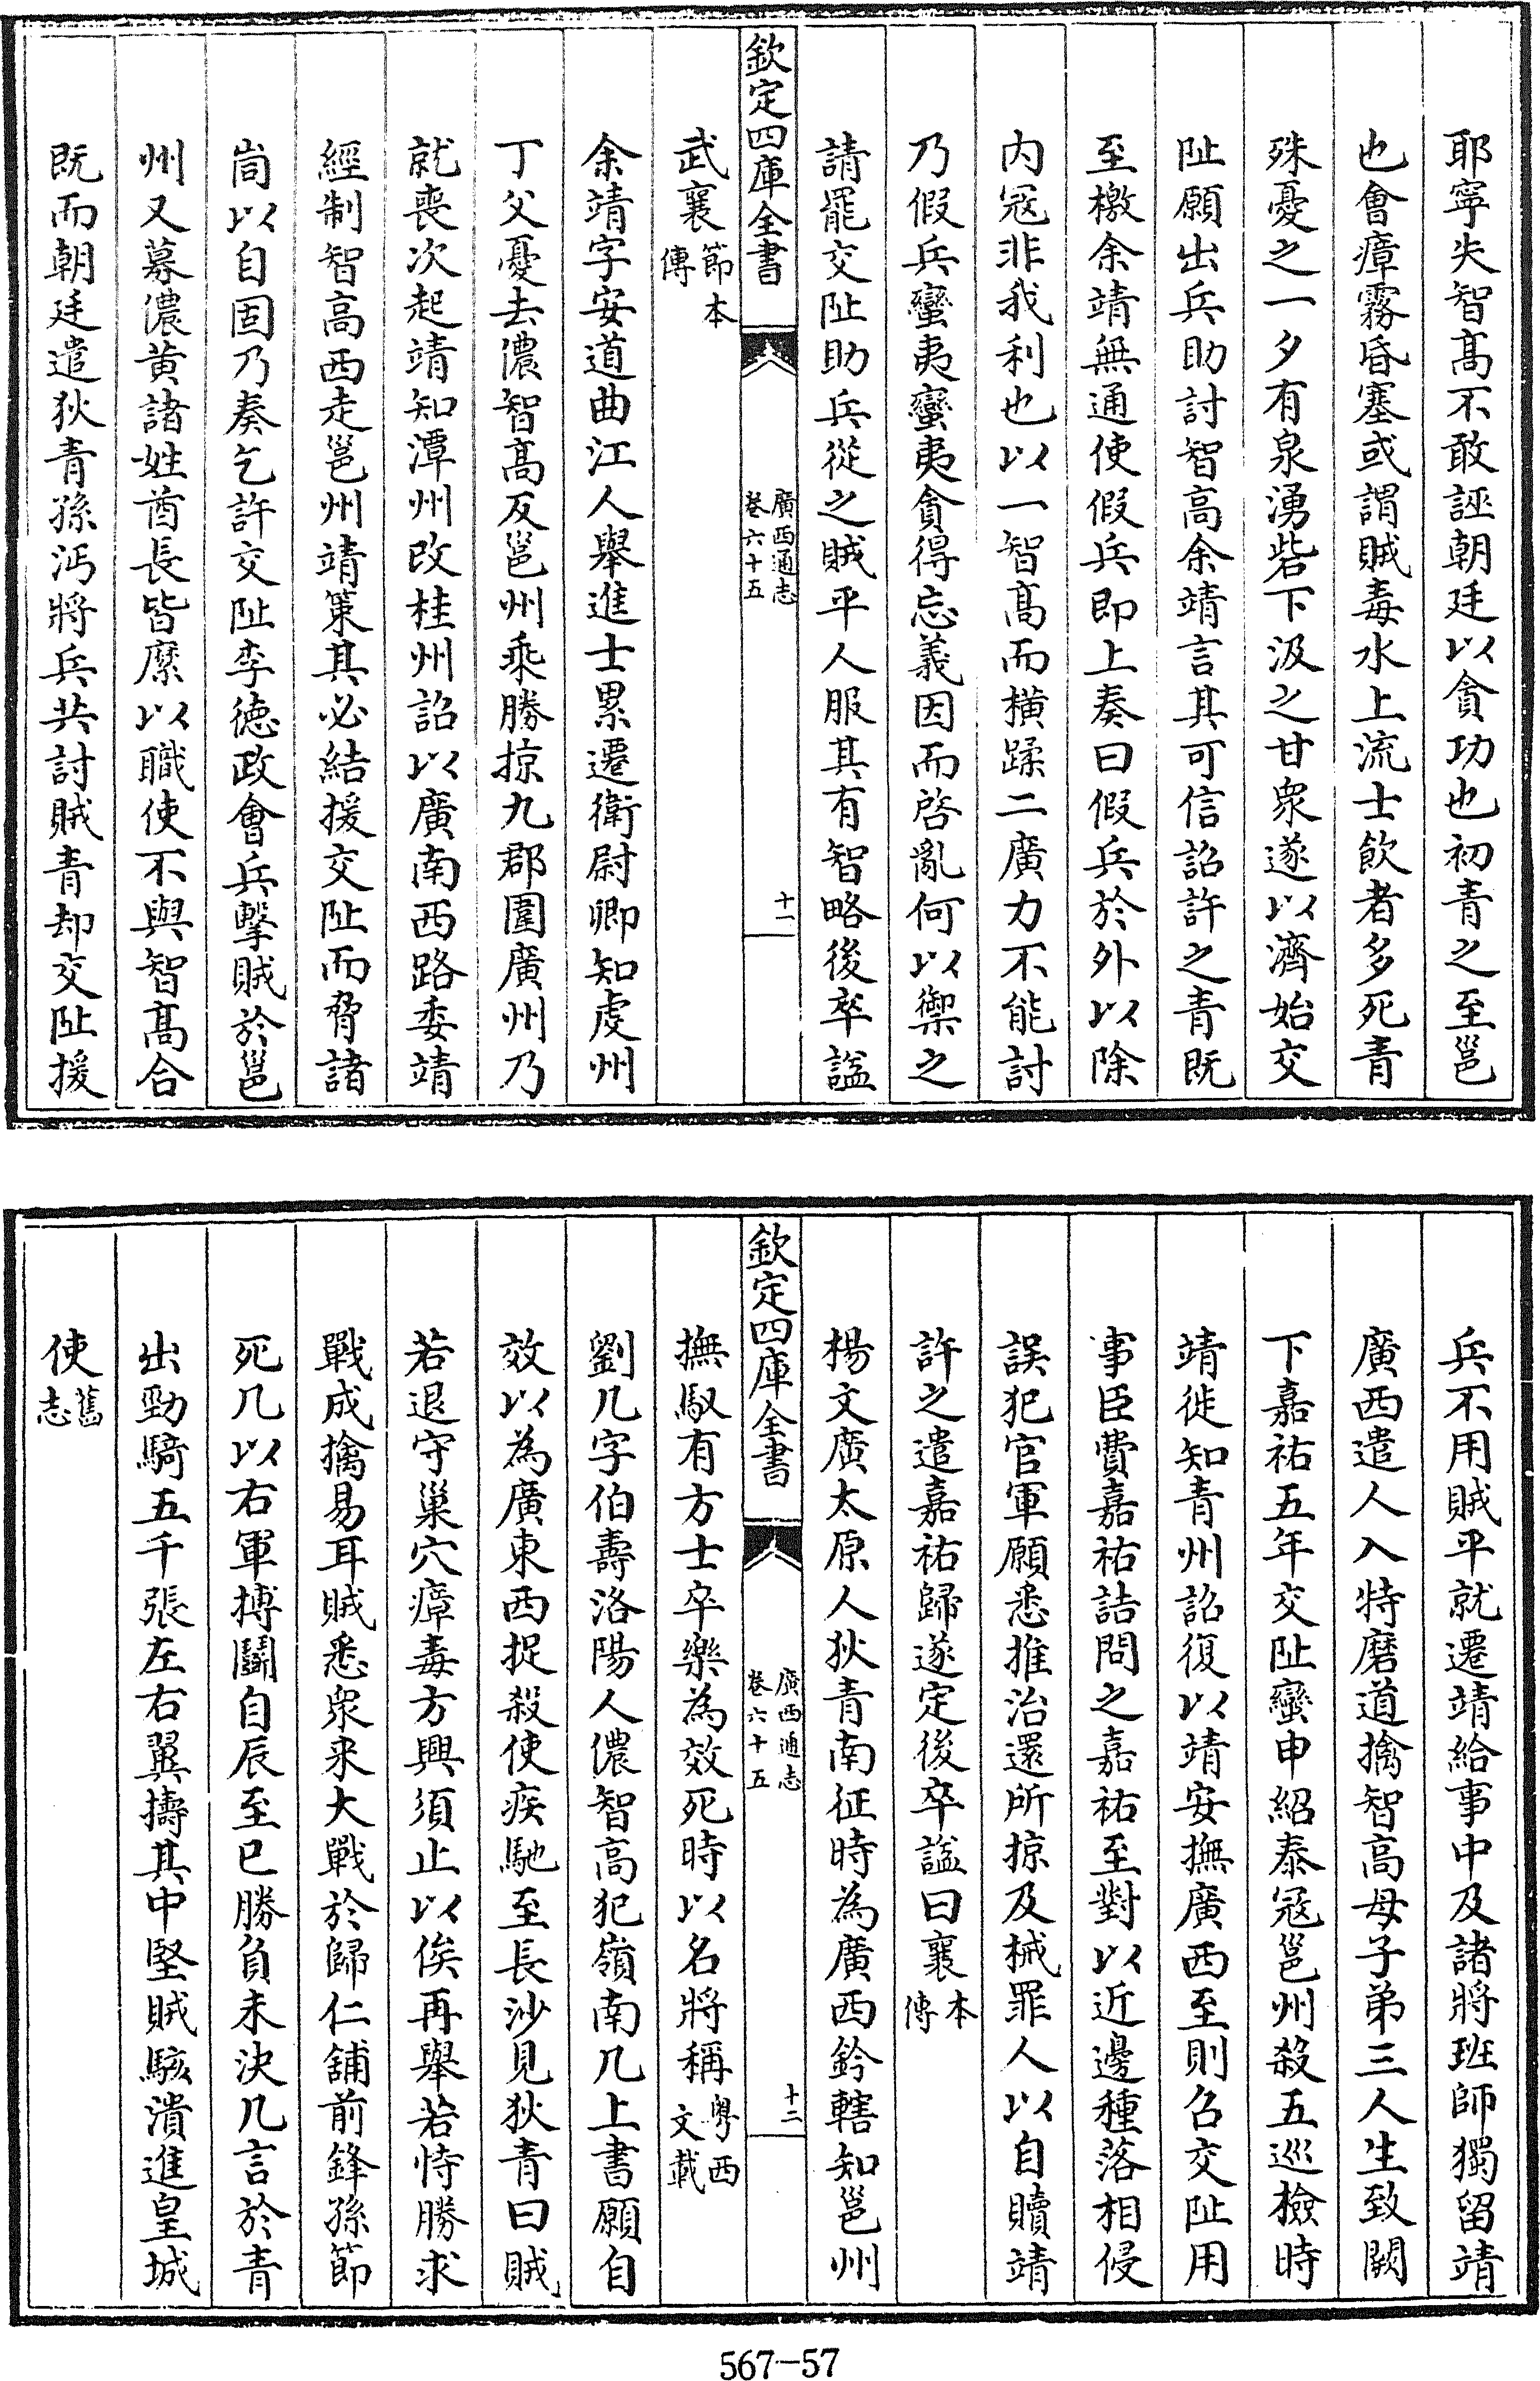 耶寧失智高不敢誣朝廷以貪功也初青之至邕
也會瘴霧昏塞或謂賊毒水上流士飲者多死青
殊憂之一夕有泉湧砦下汲之甘衆遂以濟始交
阯願出兵助討智高余靖言其可信詔許之青既
至檄余靖無通使假兵即上奏曰假兵於外以除
内冦非我利也以一智高而横蹂二廣力不能討
乃假兵蠻夷蠻夷貪得忘義因而啓亂何以禦之
請罷交阯助兵從之賊平人服其有智略後卒諡
欽定四庫全書
廣西通志
卷六十五
十一
武襄節本
傳
余靖字安道曲江人舉進士累遷衛尉卿知虔州
丁父憂去儂智高反邕州乘勝掠九郡圍廣州乃
就喪次起靖知潭州改桂州詔以廣南西路委靖
經制智高西走邕州靖策其必結援交阯而脅諸
峝以自固乃奏乞許交阯李德政會兵擊賊於邕
州又募儂黄諸姓酋長皆縻以職使不與智高合
既而朝廷遣狄青孫沔將兵共討賊青却交阯援
兵不用賊平就遷靖給事中及諸將班師獨留靖
廣西遣人入特磨道擒智高母子弟三人生致闕
下嘉祐五年交阯蠻申紹泰冦邕州殺五巡檢時
靖徙知青州詔復以靖安撫廣西至則召交阯用
事臣費嘉祐詰問之嘉祐至對以近邊種落相侵
誤犯官軍願悉推治還所掠及械罪人以自贖靖
許之遣嘉祐歸遂定後卒諡曰襄本
傳
楊文廣太原人狄青南征時為廣西鈐轄知邕州
欽定四庫全書
廣西通志
卷六十五
十二
撫馭有方士卒樂為效死時以名將稱粤西
文載
劉几字伯壽洛陽人儂智高犯嶺南几上書願自
效以為廣東西捉殺使疾馳至長沙見狄青曰賊
若退守巢穴瘴毒方興須止以俟再舉若恃勝求
戰成擒易耳賊悉衆来大戰於歸仁舖前鋒孫節
死几以右軍搏鬬自辰至巳勝負未決几言於青
出勁騎五千張左右翼擣其中堅賊駭潰進皇城
使舊
志
567-57